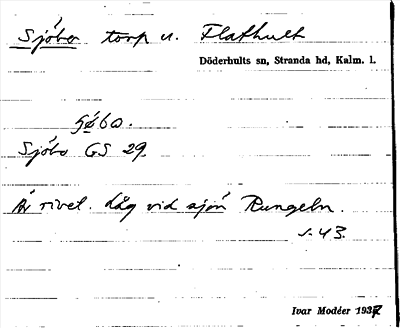 Sjöbo torp u. Flathult
Döderhults sn, Stranda hd, Kalm. l.
Sjöbo GS 29.
Är rivet. Låg vid sjön Rungeln.
s. 43.
Ivar Modéer 1937